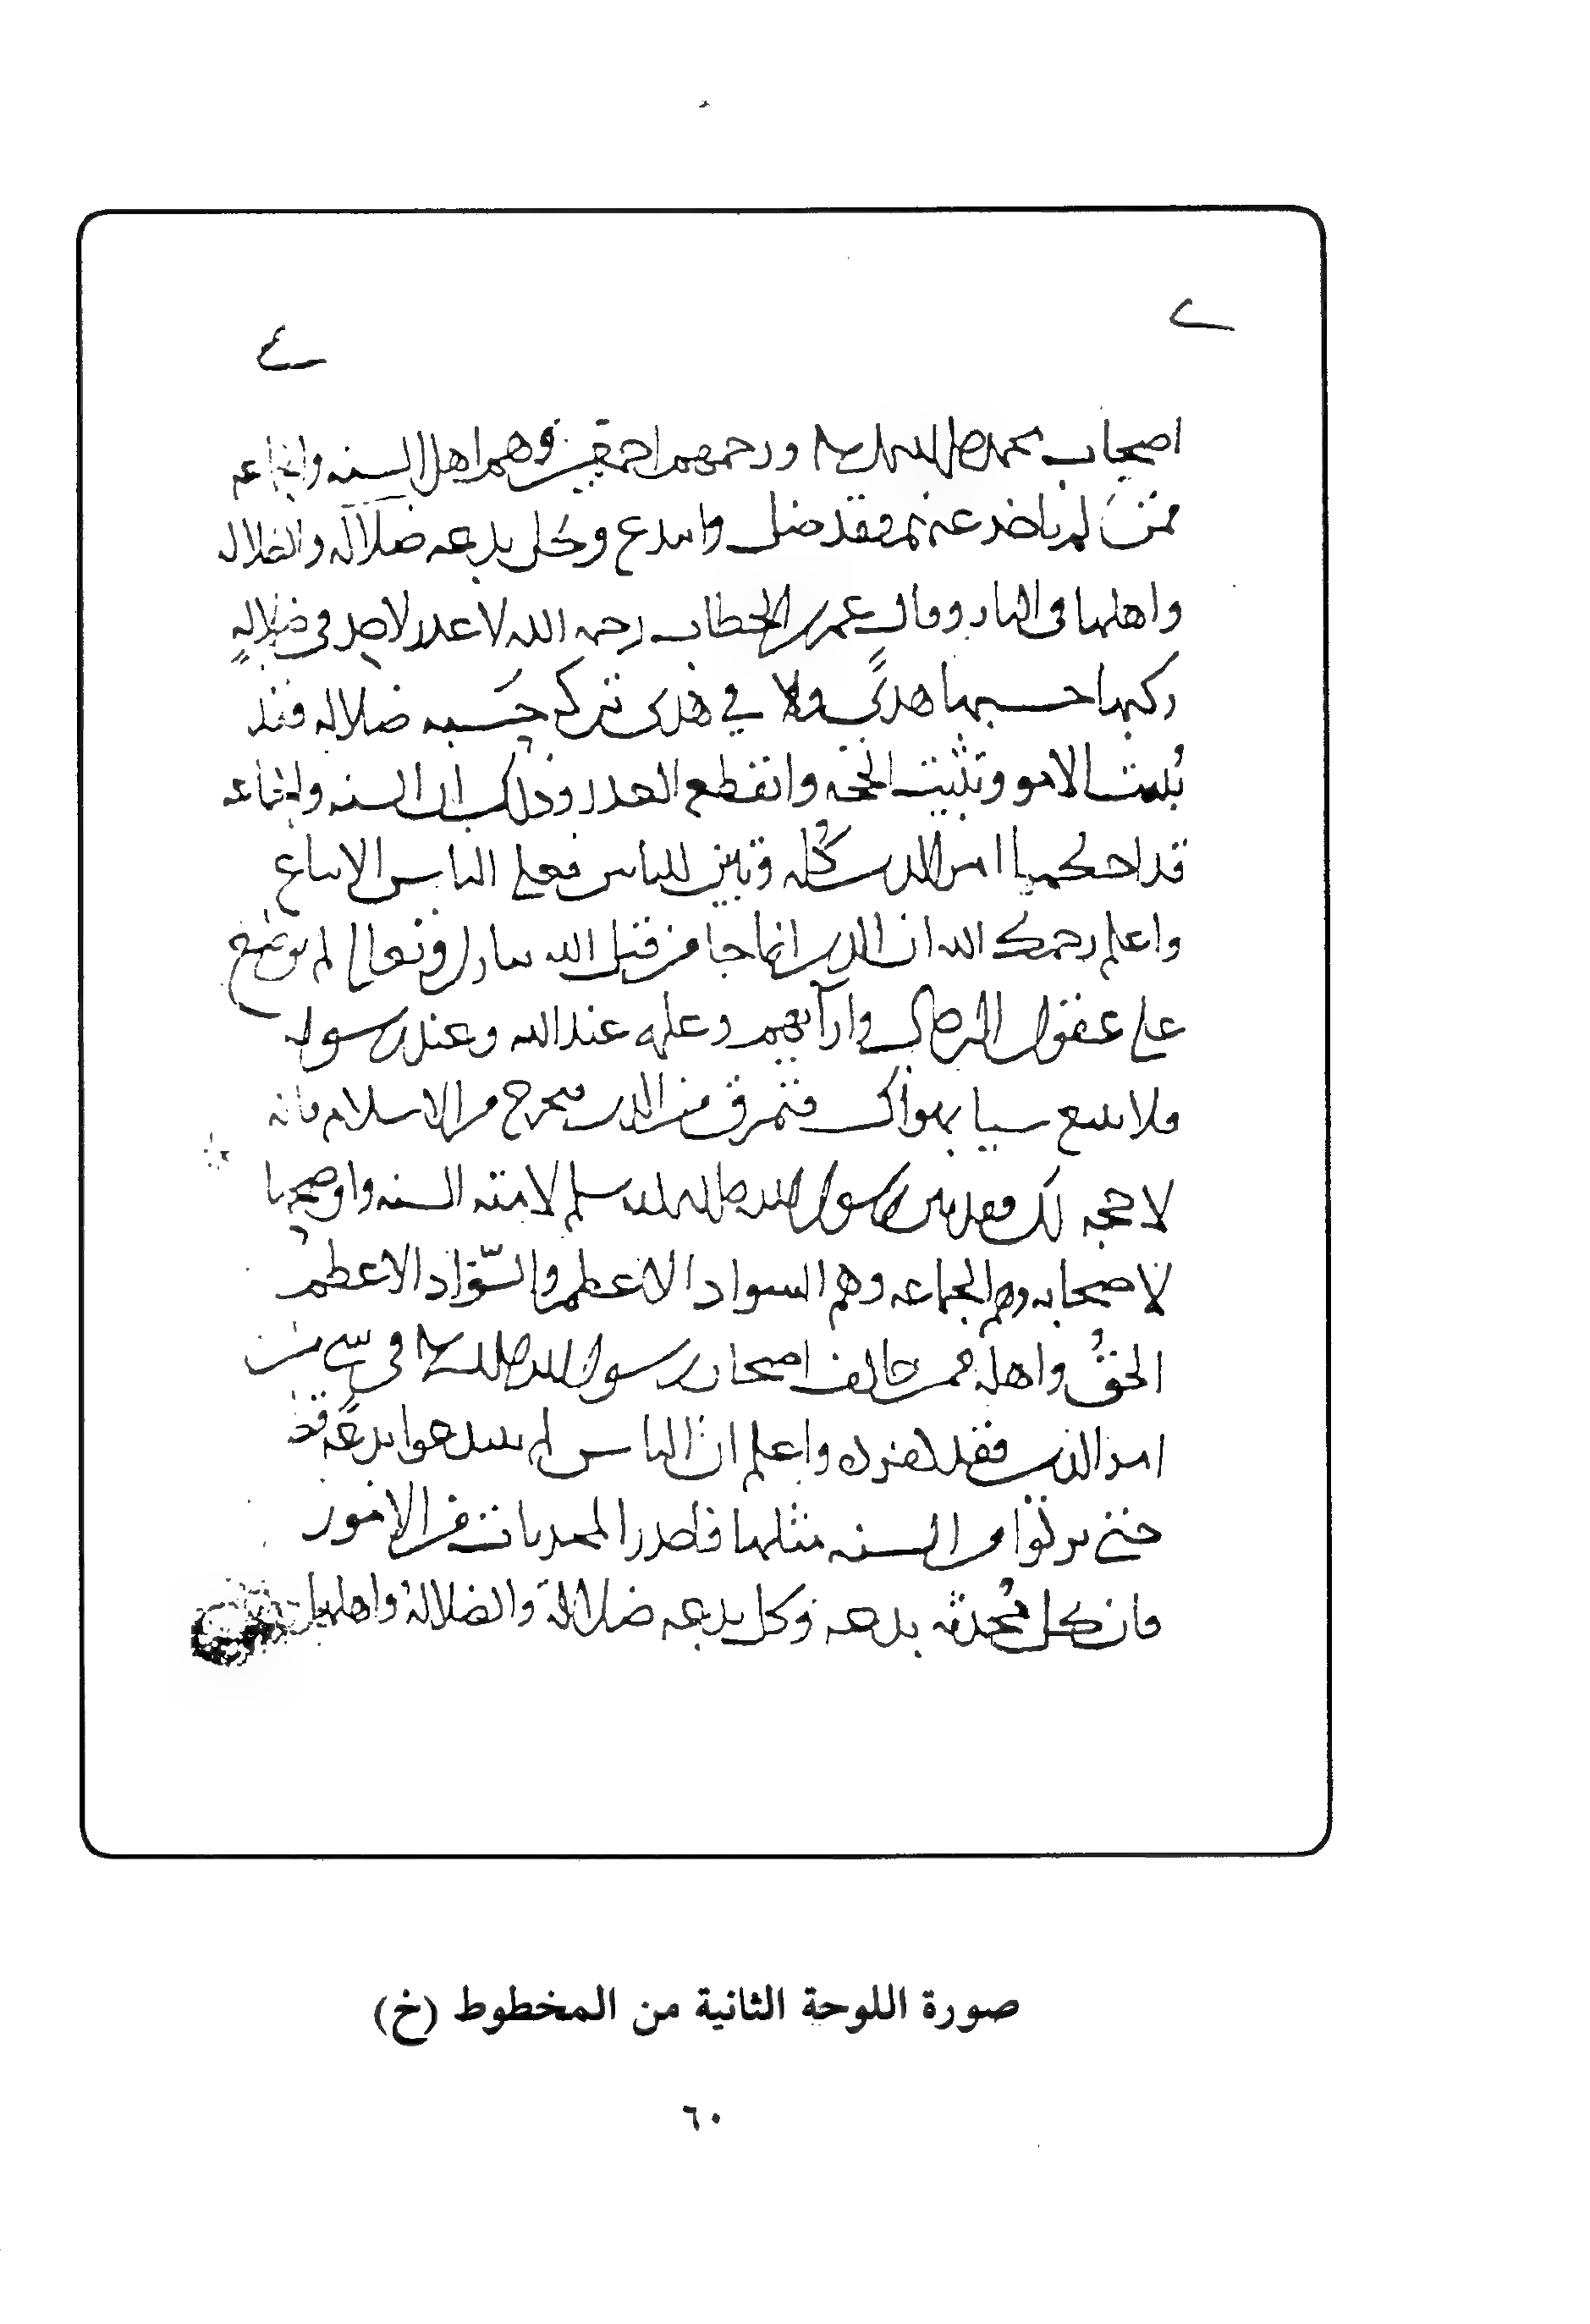 ٢
٤
اصحاب محمد صلى الله عليه وسلم ورحمهم اجمعين وهم اهل السنه والجماعه
فمن لم ياخذ عنهم فقد ضل وابتدع وكل بدعه ضلالة والضلاله
واهلها في النار وقال عمر بن الخطاب رحمه الله لا عذر لاحد في ضلالةٍ
ركبها حسبها هدىً ولا في هدى تركه حَسبه ضلاله فقد
بُينت الامور وتثبت الحجه وانقطع العذر وذلك ان السنه والجماعه
قد احكما امر الدين كُله وتبين للناس فعلى الناس الاتباع
واعلم رحمك الله ان الدين انما جا من قبل الله تبارك وتعالى لم يوضع
على عقول الرجال وارآيهم وعلمه عند الله وعند رسوله
فلا تتبع شيا بهواك فتمرق من الدين فتخرج من الاسلام فانه
لا حجه لك فقد بين رسول الله صلى الله عليه وسلم لامته السنه واوضحها
لاصحابه وهم الجماعه وهم السواد الاعظم والسّواد الاعظم
الحقُ واهله فمن خالف اصحاب رسول الله صلى الله عليه وسلم في شي من
امر الدين فقد كفر واعلم ان الناس لم يبتدعوا بدعةً قط
حتى تركوا من السنه مثلها فاحذر المحدثات من الامور
فان كل مُحدثه بدعه وكل بدعه ضلالة والضلالة واهلها
صورة اللوحة الثانية من المخطوط (خ)
٦٠